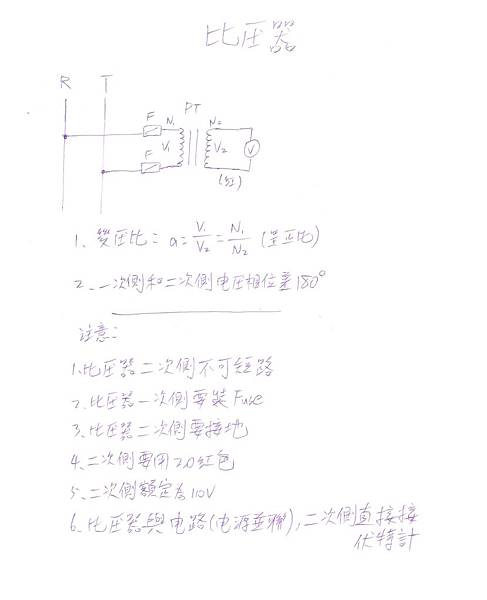 比压器
R T
F N1 PT N2
V1 V2 V
F
(红)
1、變圧比： a= V1/V2 = N1/N2 (呈正比)
2、一次側和二次側电圧相位差180°
注意：
1.比压器二次側不可短路
2、比压器一次側要裝Fuse
3、比压器二次側要接地
4、二次側要用2.0红色
5、二次側額定為110V
6、比压器與电路(电源並聯)，二次側直接接
伏特計